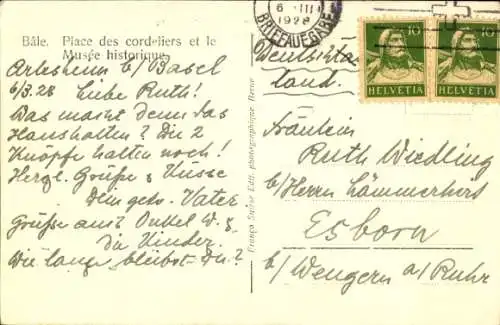 Bâle. Place des cordeliers et le
Musée historique.
Arlesheim b/Basel
6/3.28 Liebe Ruth!
Was macht denn das
Haushalten? Die 2
Knöpfe halten noch!
Herzl. Grüße & Küsse
Dein getr. Vater
Grüße auch Onkel W. &
die Kinder.
Wie lange bleibst Du?
Franco Suisse Edit. photographique Berne
6 III
1928
BRIEFAUFGABE
10
10
HELVETIA
HELVETIA
Deutschland.
Fräulein
Ruth Wiedling
b/Herrn Lämmerhirt
Esborn
b/ Wengern a/Ruhr